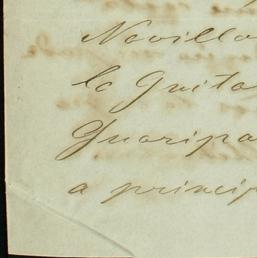 Novillo
lo quita
Guaripa
a princip